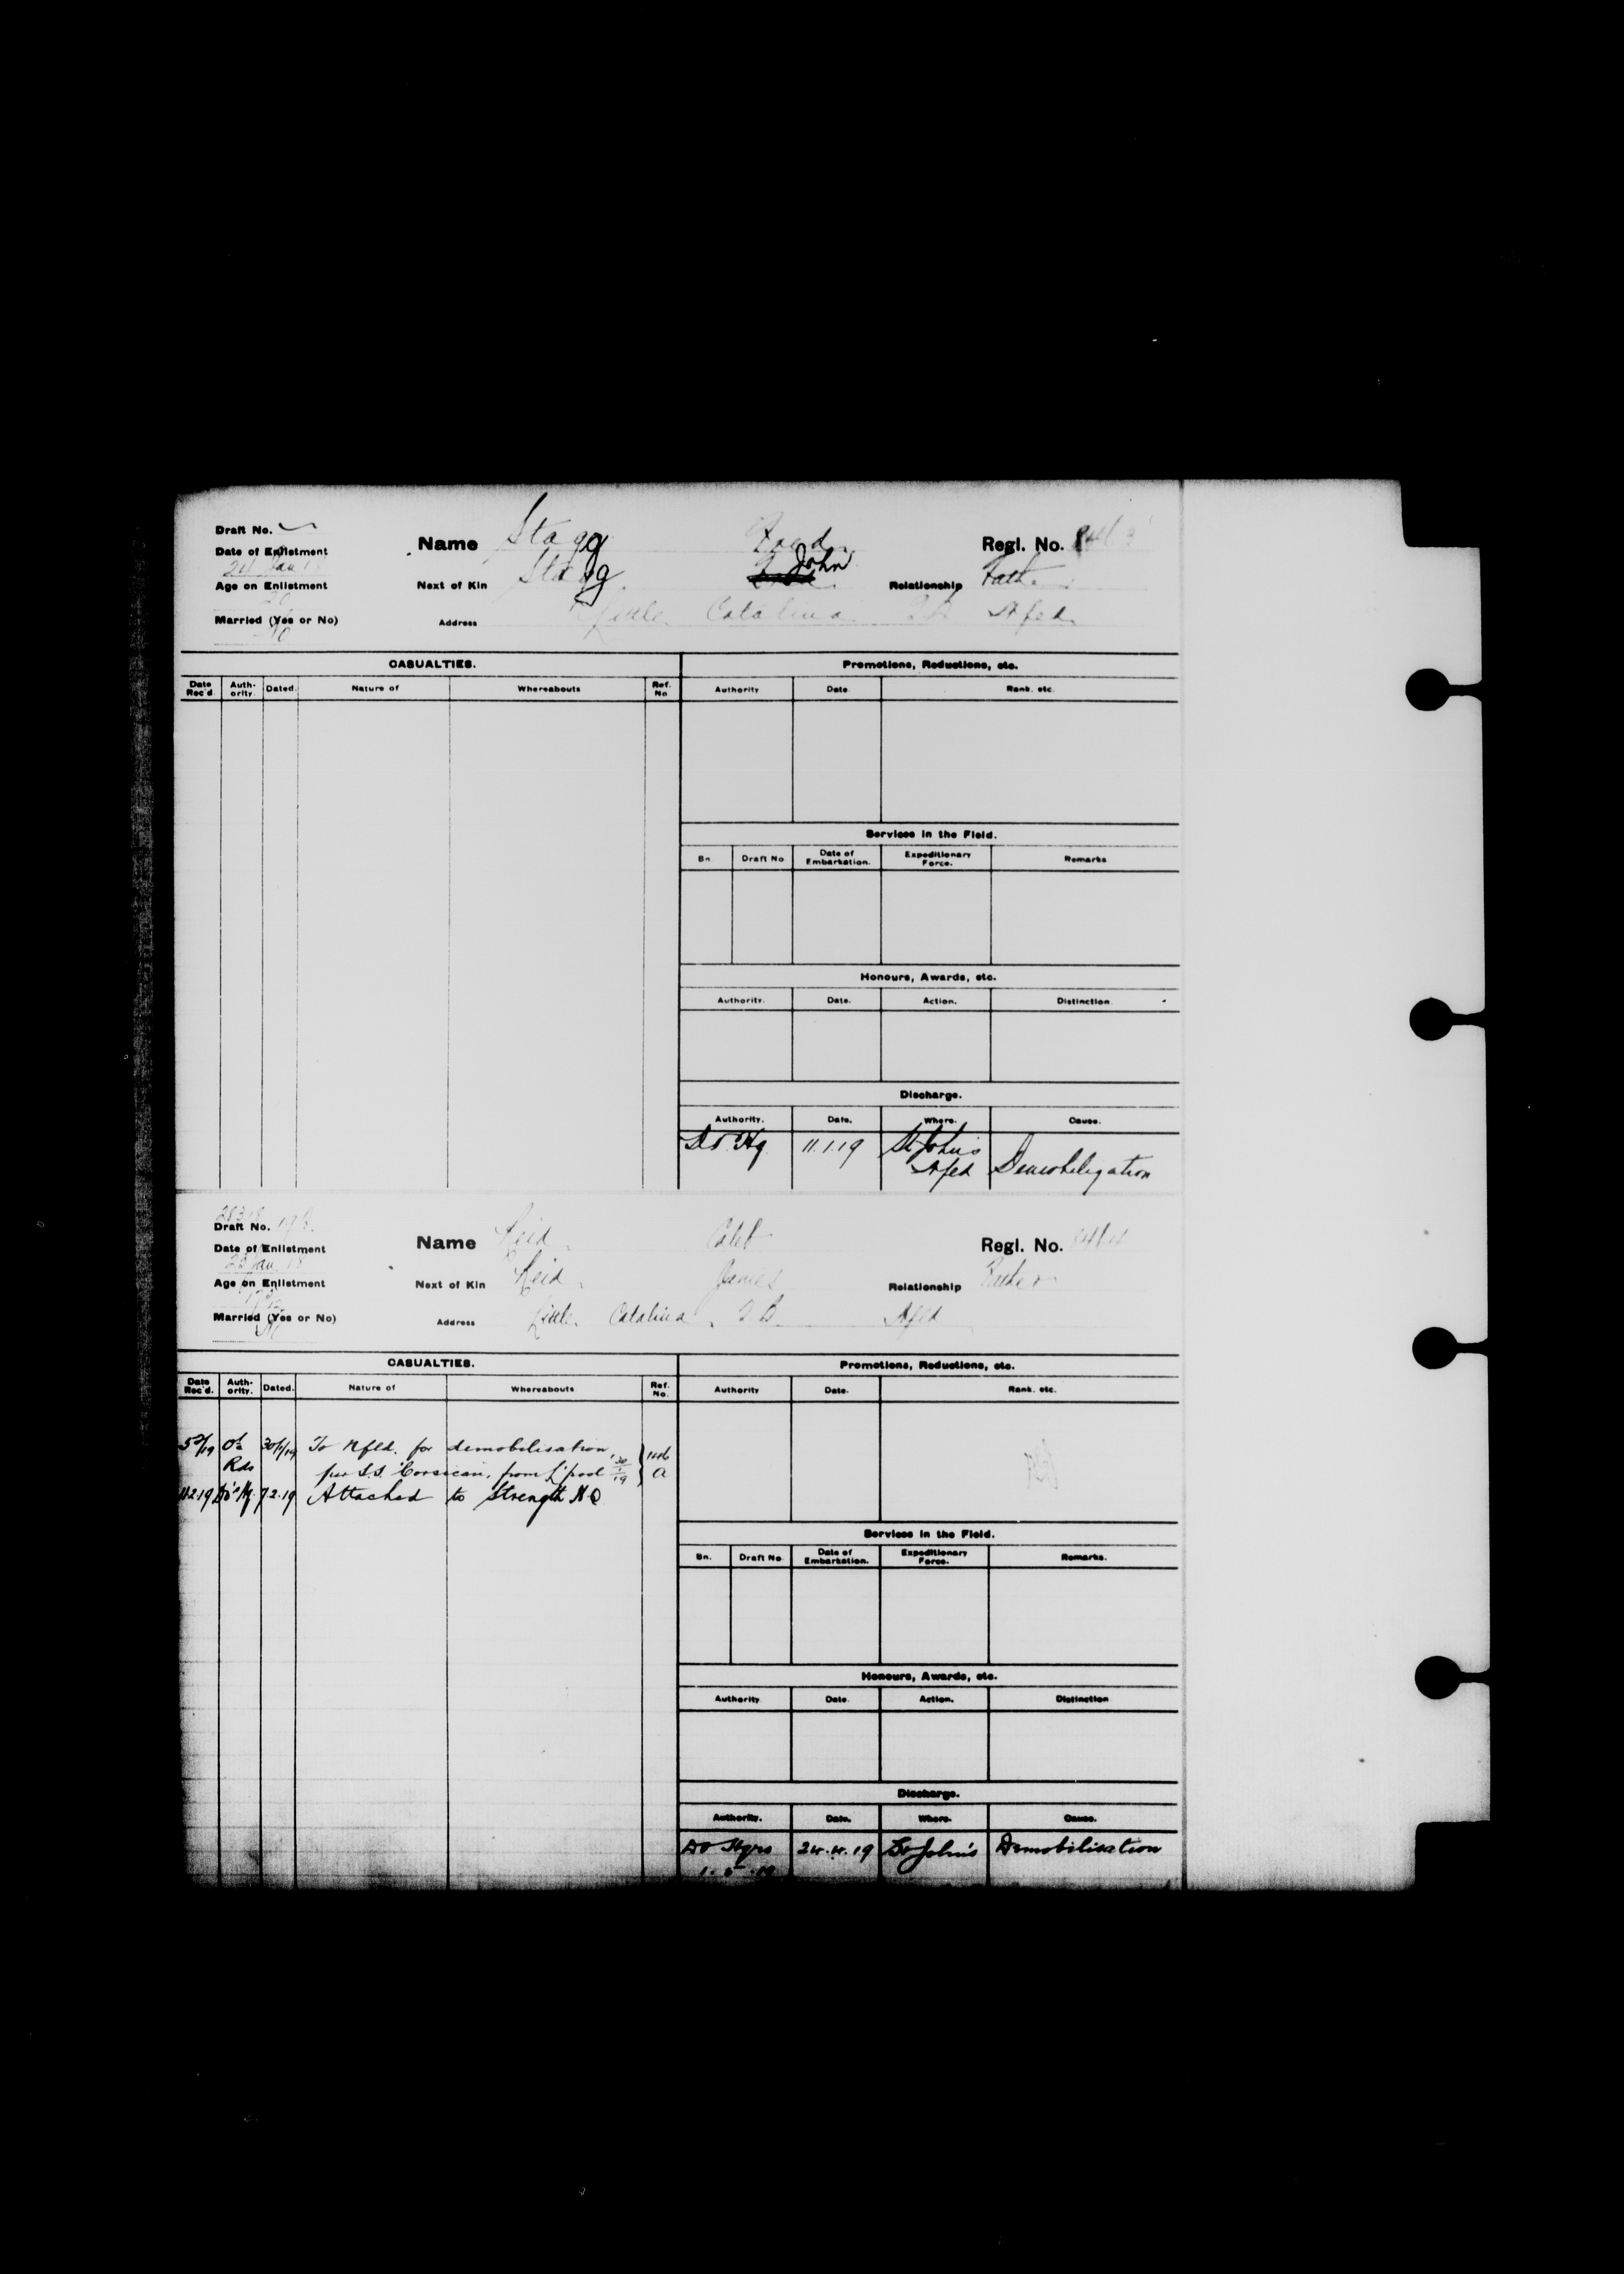 Draft No.
Name Stagg
Regl. No. 8463
Date of Enlistment
24 Jan 18
Next of Kin Stagg John
Relationship Father
Age on Enlistment
20
Address Little Catalina T.B. Nfld
Married (Yes or No)
No
CASUALTIES. Promotions, Reductions, etc.
Date Rec'd. Auth-ority. Dated. Nature of Whereabouts Ref. No. Authority Date. Rank, etc.
Services in the Field.
Bn. Draft No. Date of Embarkation. Expeditionary Force. Remarks
Honours, Awards, etc.
Authority. Date. Action. Distinction.
Discharge.
Authority. Date. Where. Cause.
DO Hq 11.1.19 St John's Nfld Demobilization
Draft No.
Name Reid Caleb
Regl. No. 8464
Date of Enlistment
Jan 18
Next of Kin Reid James
Relationship Father
Age on Enlistment
Address Little Catalina, T.B. Nfld
Married (Yes or No)
No
CASUALTIES. Promotions, Reductions, etc.
Date Rec'd. Auth-ority. Dated. Nature of Whereabouts Ref. No. Authority Date. Rank, etc.
5/2/19 Rds 30/1/19 To Nfld. for demobilisation,
per S.S. Corsican, from L'pool 30/1/19 A
11.2.19 DO Hq. 7.2.19 Attached to Strength H.Q.
Services in the Field.
Bn. Draft No. Date of Embarkation. Expeditionary Force. Remarks.
Honours, Awards, etc.
Authority Date. Action. Distinction
Discharge.
Authority. Date. Where. Cause.
DO Hqrs 24.4.19 St John's Demobilisation
1.5.19